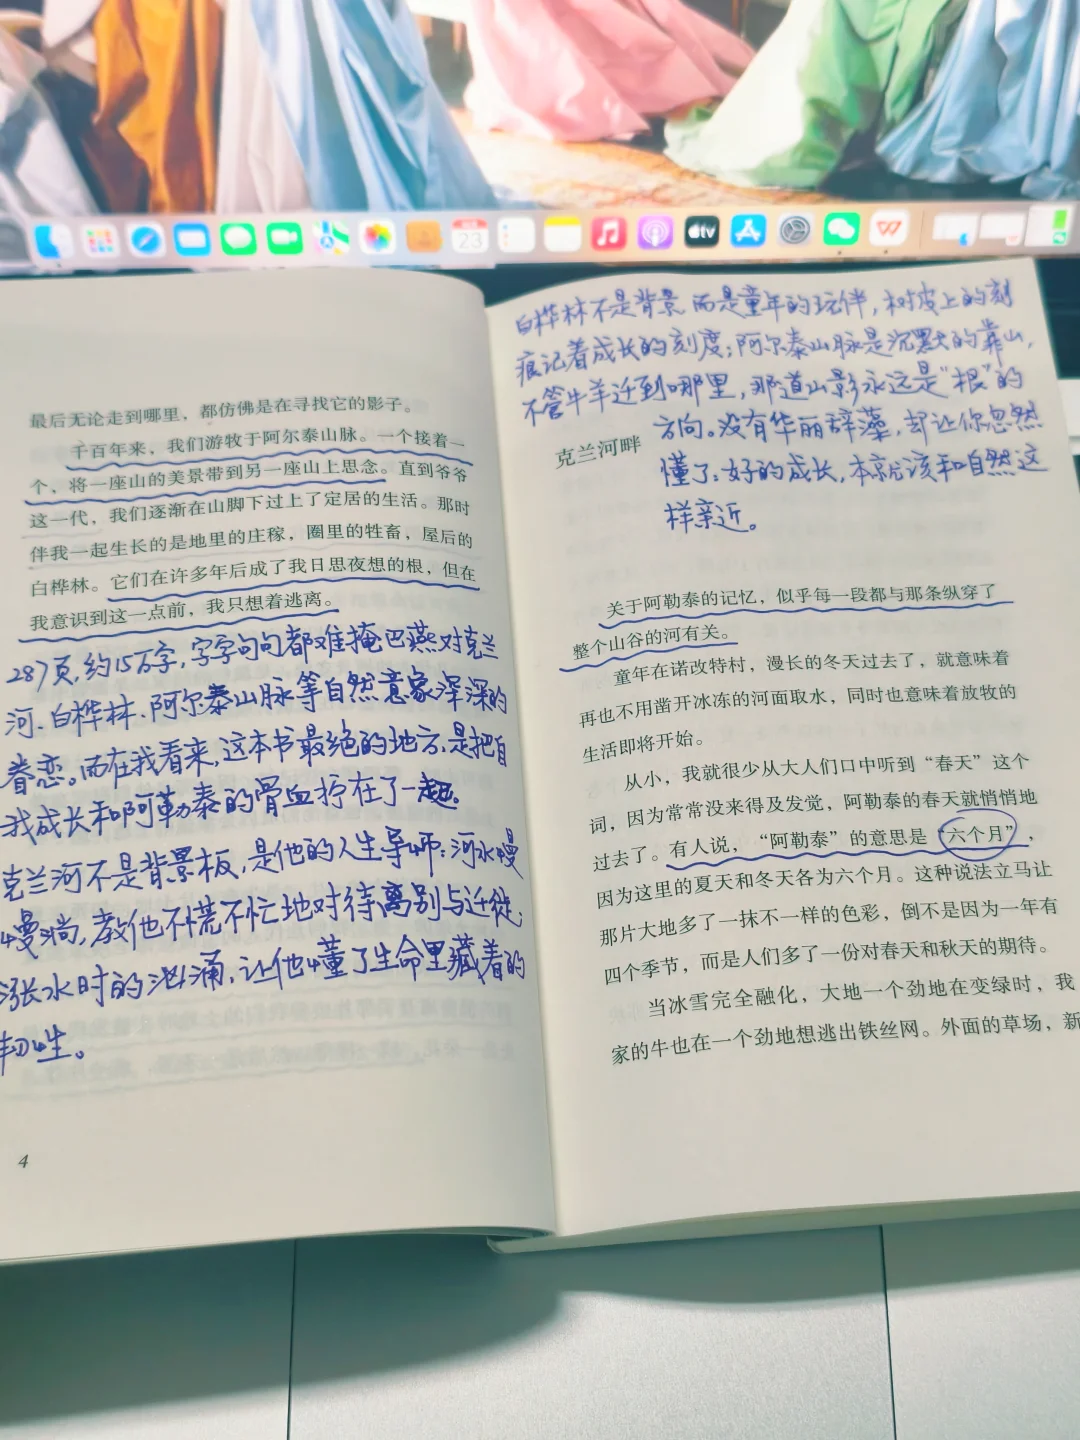 23
tv
最后无论走到哪里，都仿佛是在寻找它的影子。
千百年来，我们游牧于阿尔泰山脉。一个接着一
个，将一座山的美景带到另一座山上思念。直到爷爷
这一代，我们逐渐在山脚下过上了定居的生活。那时
伴我一起生长的是地里的庄稼，圈里的牲畜，屋后的
白桦林。它们在许多年后成了我日思夜想的根，但在
我意识到这一点前，我只想着逃离。
287页，约15万字，字字句句都难掩巴燕对克兰
河、白桦林、阿尔泰山脉等自然意象深深的
眷恋。而在我看来，这本书最绝的地方，是把自
我成长和阿勒泰的骨血拧在了一起。
克兰河不是背景板，是他的人生导师：河水慢
慢淌，教他不慌不忙地对待离别与迁徙；
涨水时的汹涌，让他懂了生命里藏着的
韧性。
4
白桦林不是背景，而是童年的玩伴，树皮上的刻
痕记着成长的刻度；阿尔泰山脉是沉默的靠山，
不管牛羊迁到哪里，那道山影永远是“根”的
方向。没有华丽辞藻，却让你忽然
懂了：好的成长，本就该和自然这
样亲近。
克兰河畔
关于阿勒泰的记忆，似乎每一段都与那条纵穿了
整个山谷的河有关。
童年在诺改特村，漫长的冬天过去了，就意味着
再也不用凿开冰冻的河面取水，同时也意味着放牧的
生活即将开始。
从小，我就很少从大人们口中听到“春天”这个
词，因为常常没来得及发觉，阿勒泰的春天就悄悄地
过去了。有人说，“阿勒泰”的意思是“六个月”，
因为这里的夏天和冬天各为六个月。这种说法立马让
那片大地多了一抹不一样的色彩，倒不是因为一年有
四个季节，而是人们多了一份对春天和秋天的期待。
当冰雪完全融化，大地一个劲地在变绿时，我
家的牛也在一个劲地想逃出铁丝网。外面的草场，新